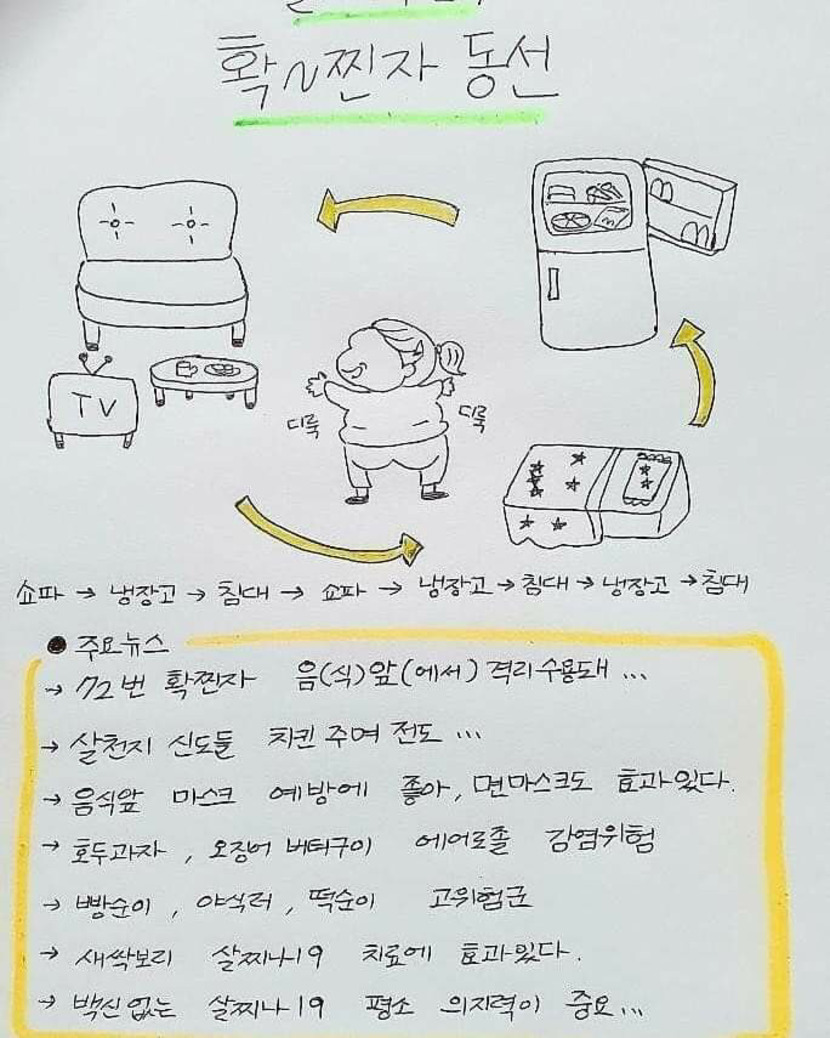 확~찐자 동선
TV
디룩
디룩
쇼파 → 냉장고 → 침대 → 쇼파 → 냉장고 → 침대 → 냉장고 → 침대
● 주요뉴스
→ 72번 확찐자 음(식)앞(에서) 격리수용돼 ...
→ 살천지 신도들 치킨 주며 전도 ...
→ 음식앞 마스크 예방에 좋아, 면마스크도 효과있다.
→ 호두과자, 오징어 버터구이 에어로졸 감염위험
→ 빵순이, 야식러, 떡순이 고위험군
→ 새싹보리 살찌나19 치료에 효과있다.
→ 백신없는 살찌나19 평소 의지력이 중요...